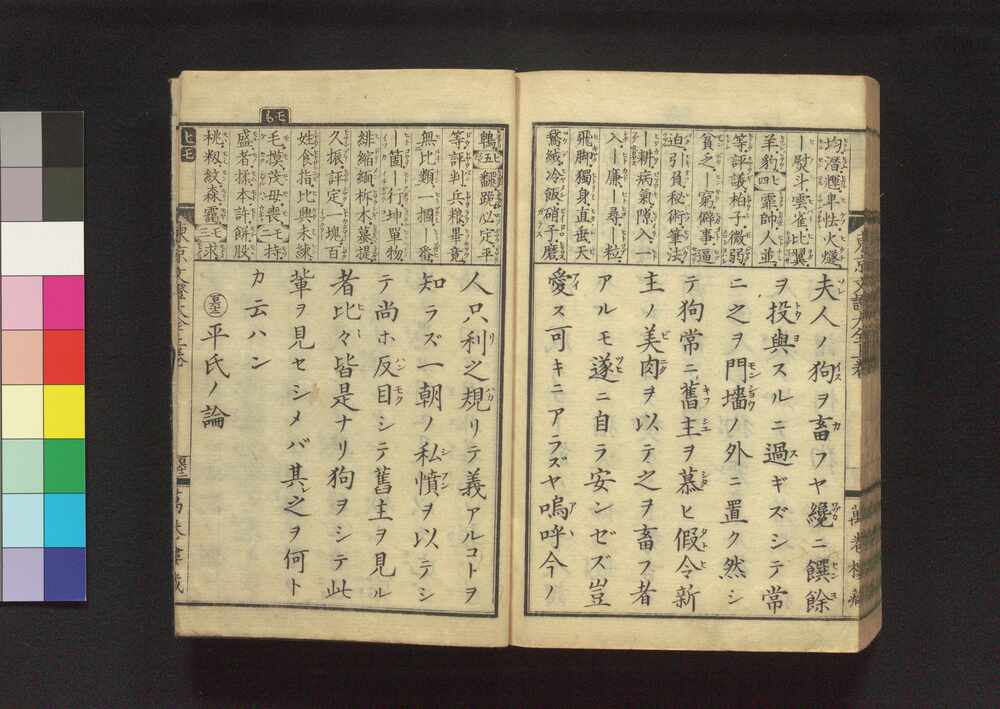 夫人ノ狗ヲ畜フヤ纔ニ饌餘
ヲ投與スルニ過ギズシテ常
ニ之ヲ門墻ノ外ニ置ク然シ
テ狗常ニ舊主ヲ慕ヒ假令新
主ノ美肉ヲ以テ之ヲ畜フ者
アルモ遂ニ自ラ安ンゼズ豈
愛ス可キニアラズヤ嗚呼今ノ
羊豹
等評議柏子微弱
貧乏ー窮僻事逼
迫引負秘術筆法
ー耕病氣隙入一
入ー廉ー尋ー粒
飛脚獨身直垂天
鵞絨冷飯硝子磨
人只利之規リテ義アルコトヲ
知ラズ一朝ノ私憤ヲ以テシ
テ尚ホ反目シテ舊主ヲ見ル
者比々皆是ナリ狗ヲシテ此
輩ヲ見セシメバ其之ヲ何ト
カ云ハン
平氏ノ論
等評判兵粮畢竟
無比類一摑ー番
ー箇ー行坤單物
緋縮緬柝木墓提
久振評定一塊百
姓食指比興未練
盛者揉本許餅股
東京文證大全上卷
ヒモ
モも